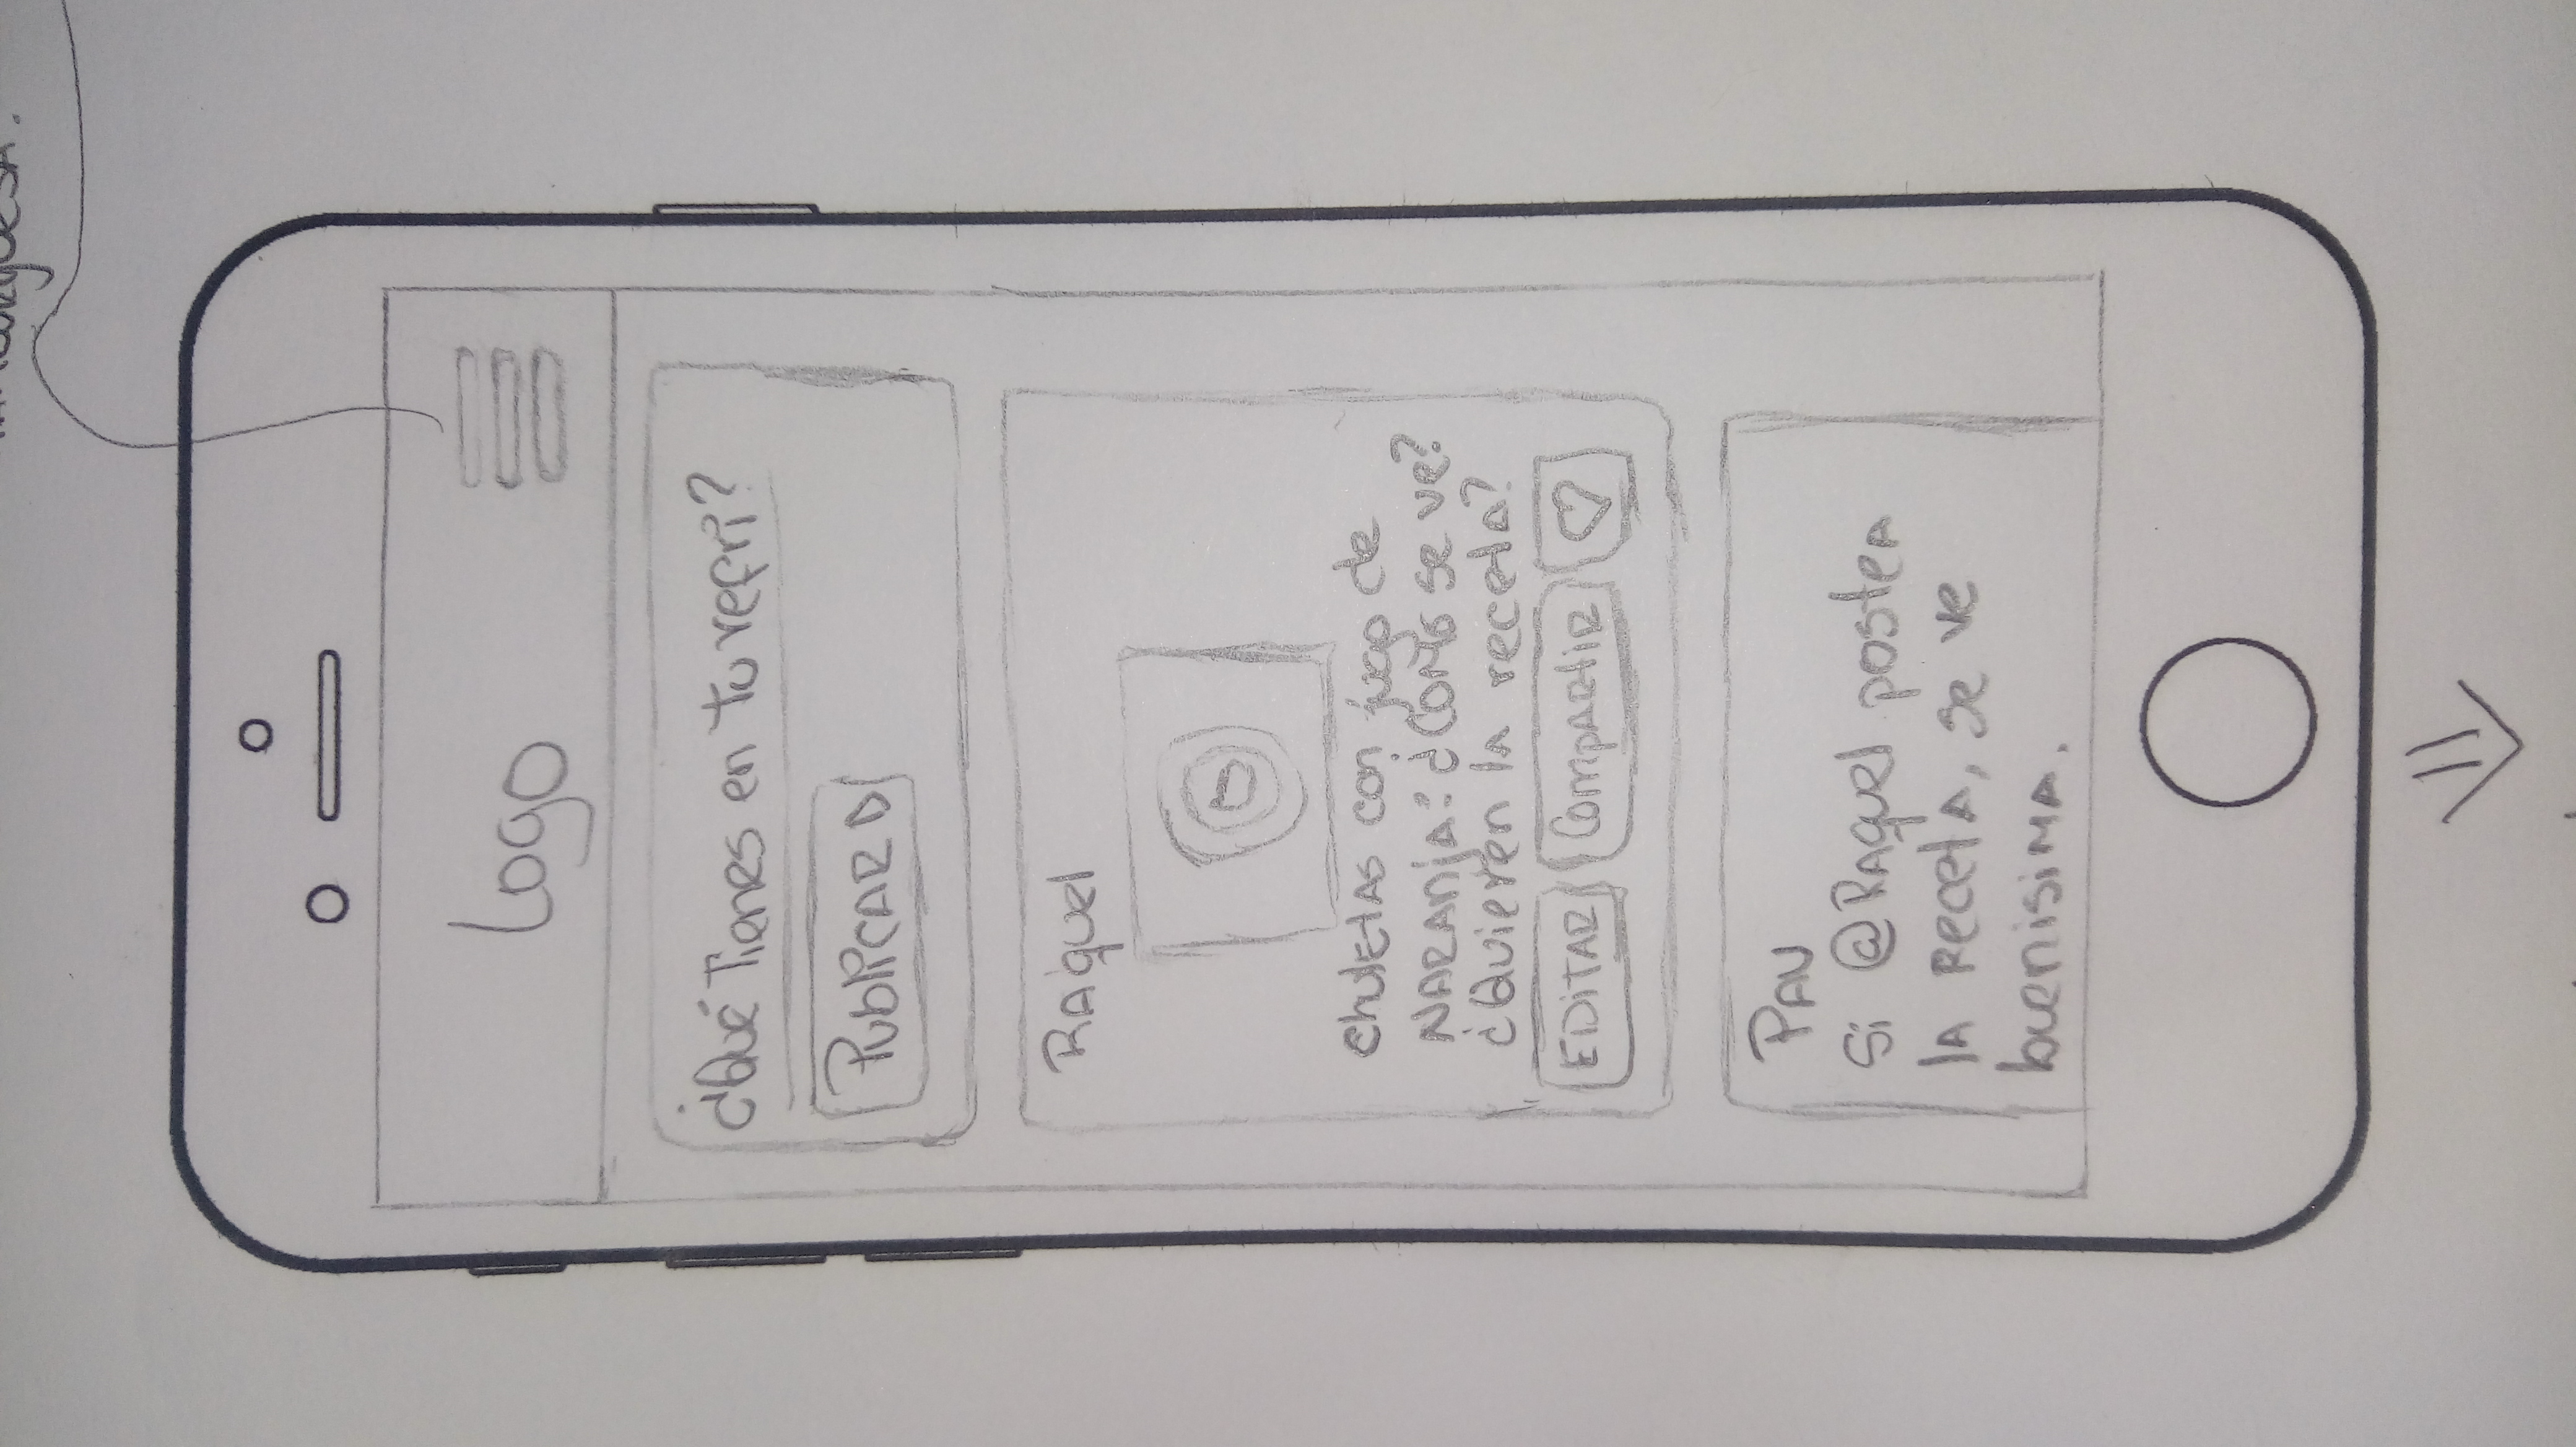 Logo
¿Qué Tienes en tu refri?
Publicar
Raquel
chuletas con jugo de
naranja: ¿Como se ve?
¿Quieren la receta?
Editar
Compartir
Pau
Si @Raquel postea
la receta, se ve
buenisima.